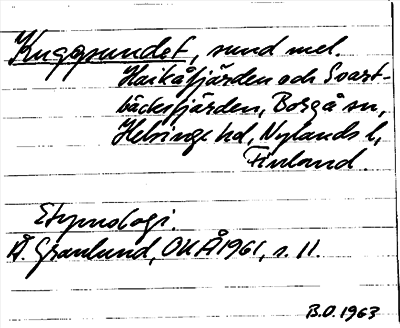 Kuggsundet, sund mel.
Haikåfjärden och Svart-
bäcksfjärden, Borgå sn,
Helsinge hd, Nylands l,
Finland.
Etymologi.
Å. Granlund, OUÅ 1961, s. 11.
B.O. 1963